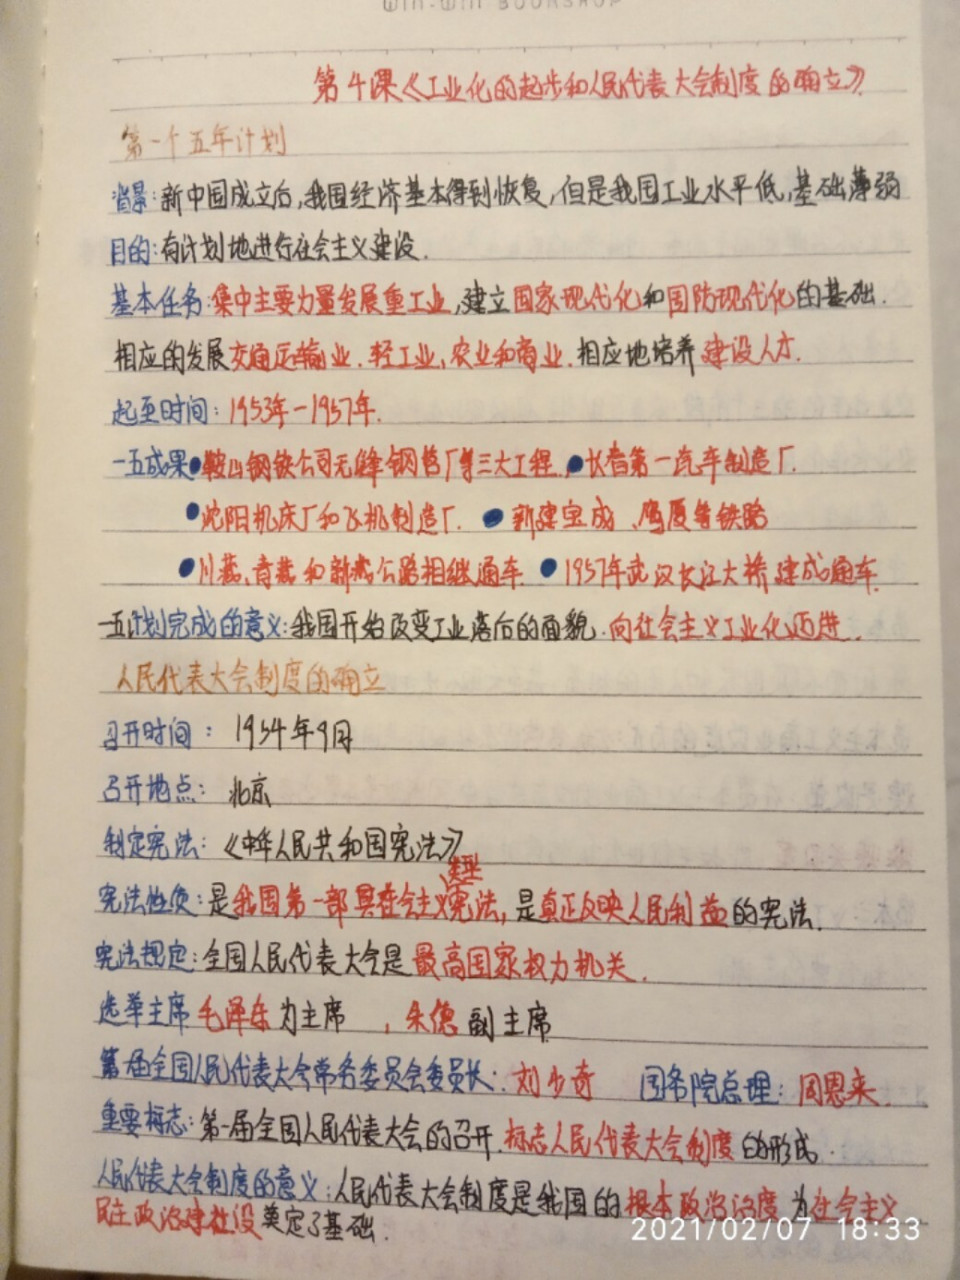 WIN-WIN BOOKSHOP
第4课《工业化的起步和人民代表大会制度的确立》
第一个五年计划
背景:新中国成立后,我国经济基本得到恢复,但是我国工业水平低,基础薄弱
目的:有计划地进行社会主义建设.
基本任务:集中主要力量发展重工业,建立国家现代化和国防现代化的基础.
相应的发展交通运输业、轻工业、农业和商业.相应地培养建设人才.
起至时间:1953年-1957年.
一五成果●鞍山钢铁公司无缝钢管厂等三大工程.●长春第一汽车制造厂.
●沈阳机床厂和飞机制造厂. ●新建宝成、鹰厦等铁路
●川藏、青藏和新藏公路相继通车 ●1957年武汉长江大桥建成通车.
一五计划完成的意义:我国开始改变工业落后的面貌.向社会主义工业化迈进.
人民代表大会制度的确立
召开时间: 1954年9月
召开地点: 北京
制定宪法:《中华人民共和国宪法》
类型
宪法性质:是我国第一部社会主义宪法,是真正反映人民利益的宪法.
宪法规定:全国人民代表大会是最高国家权力机关.
选举主席 毛泽东为主席 ,朱德副主席
第一届全国人民代表大会常务委员会委员长:刘少奇 国务院总理:周恩来.
重要标志:第一届全国人民代表大会的召开.标志人民代表大会制度的形成.
人民代表大会制度的意义:人民代表大会制度是我国的根本政治制度 为社会主义
民主政治建设奠定了基础.
2021/02/07 18:33